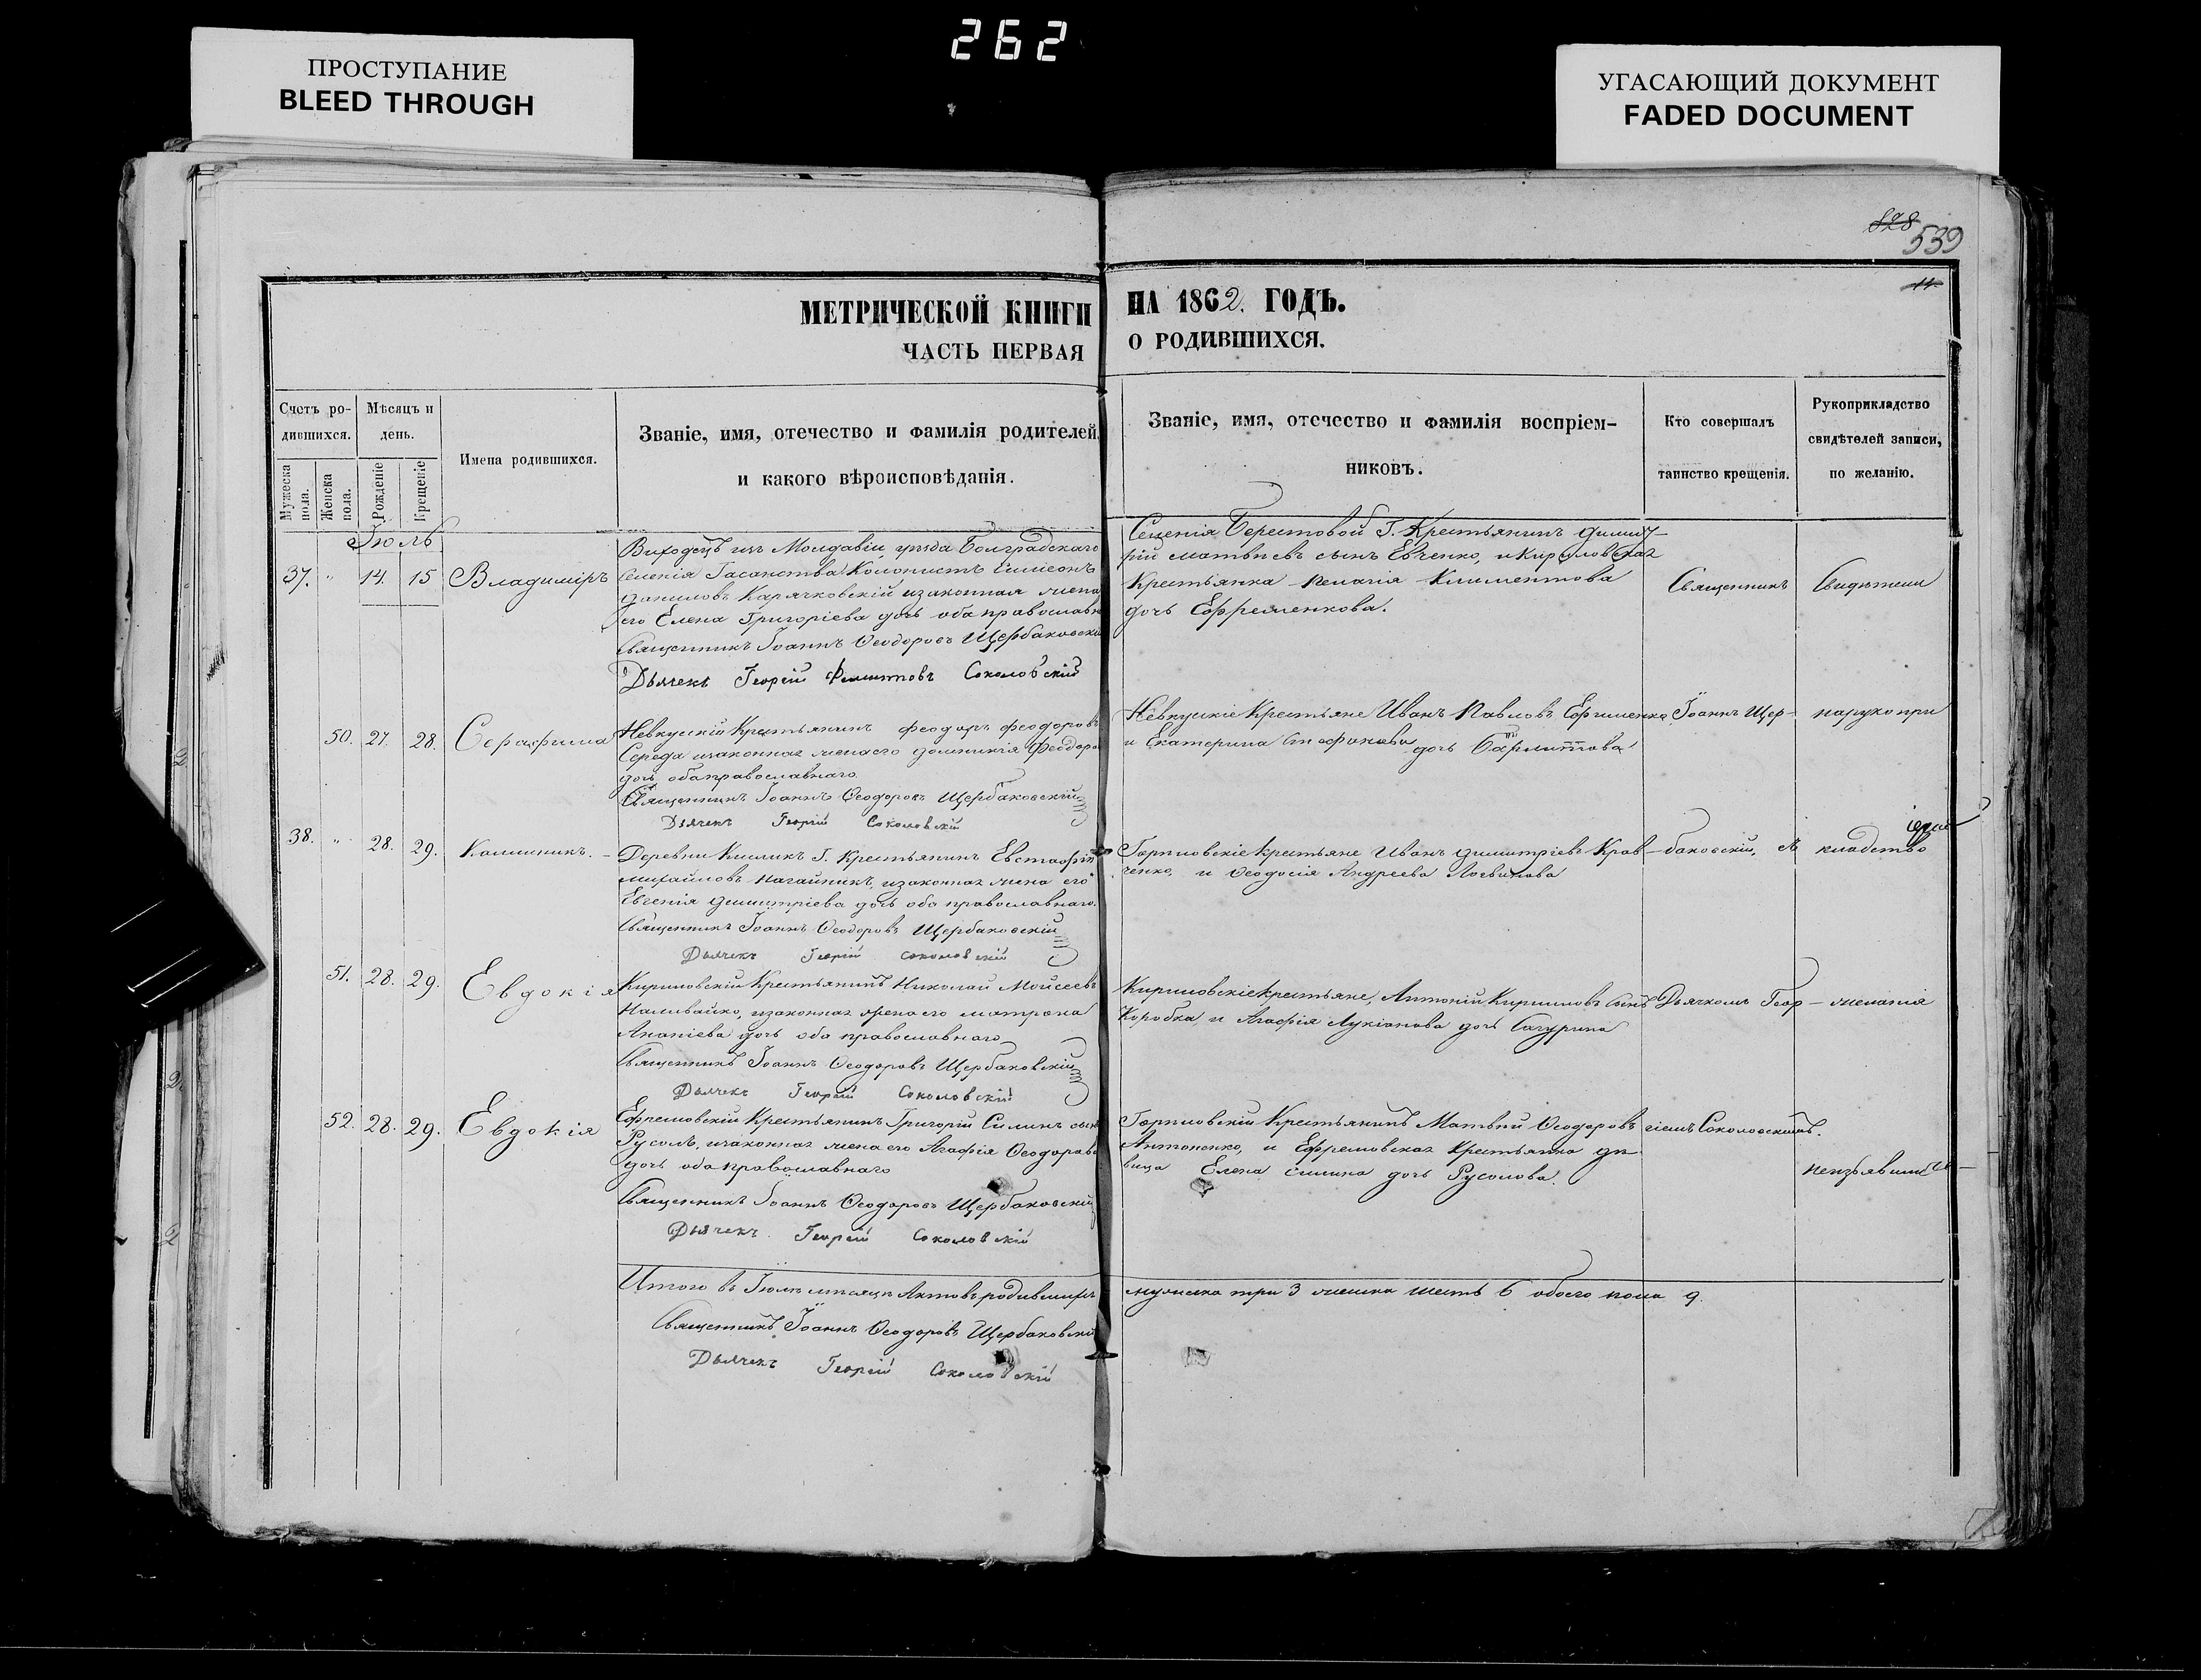 262
ПРОСТУПАНИЕ
BLEED THROUGH
УГАСАЮЩИЙ ДОКУМЕНТ
FADED DOCUMENT
828
539
МЕТРИЧЕСКОЙ КНИГИ НА 1862. ГОДЪ.
ЧАСТЬ ПЕРВАЯ О РОДИВШИХСЯ.
Счетъ ро-
дившихся.
Мужеска пола.
Женска пола.
Мѣсяцъ и
день.
Рожденіе
Крещеніе
Имена родившихся.
Званіе, имя, отечество и фамилія родителей,
и какого вѣроисповѣданія.
Званіе, имя, отечество и фамилія воспріем-
никовъ.
Кто совершалъ
таинство крещенія.
Рукоприкладство
свидѣтелей записи,
по желанію.
Іюль
37. " 14. 15 Владиміръ
Виходецъ изъ Молдавіи, уѣзда Болградскаго
Селенія Колонистъ Симеонъ
Даниловъ Карачковскій изаконная жена
его Елена Григоріева дочь оба православн
Священникъ Іоаннъ Ѳеодоровъ Щербаковскій
Дьячекъ Георгій Соколовскій
Селенія Берестовой Г. Крестьянинъ Димит-
рій Матвѣевъ сынъ Евченко, и Кириловская
Крестьянка Пелагія Климентова
дочь Ефременкова.
Священникъ
Свидѣтели
50. 27. 28. Серафима
Крестьянинъ Феодоръ Феодоровъ
Середа изаконная жена его Домникія Феодоро
дочь оба православнаго
Священникъ Іоаннъ Ѳеодоровъ Щербаковскій
Дьячекъ Георгій Соколовскій
Крестьяне Иванъ Павловъ Ефименко
и Екатерина Стефанова дочь
Іоаннъ Щер-
на рукопри
38. " 28. 29. Калиникъ.
Деревни Г. Крестьянинъ Евстафій
Михайловъ Нагайникъ, изаконная жена его
Евгенія Димитріева дочь оба православнаго.
Священникъ Іоаннъ Ѳеодоровъ Щербаковскій
Дьячекъ Георгій Соколовскій
крестьяне Иванъ Димитріевъ Крав-
ченко, и Ѳеодосія Андреева
баковскій, съ
кладство
51. 28. 29. Евдокія
Кириловскій Крестьянинъ Николай Мойсеевъ
Наливайко, изаконная жена его Матрона
Ананіева дочь оба православнаго
Священникъ Іоаннъ Ѳеодоровъ Щербаковскій
Дьячекъ Георгій Соколовскій
Кириловскіе крестьяне, Антоній Кириловъ сынъ
Коробка, и Агафія Лукіанова дочь
Дьячкомъ Геор-
желанія
52. 28. 29. Евдокія
Ефремовскій Крестьянинъ Григорій Силинъ сынъ
Русолъ, изаконная жена его Агафія Ѳеодорова
дочь оба православнаго
Священникъ Іоаннъ Ѳеодоровъ Щербаковскій
Дьячекъ Георгій Соколовскій
Крестьянинъ Матвѣй Ѳеодоровъ
Антоненко, и Ефремовская Крестьянка дѣ
вица Елена Силина дочь Русолова.
гіемъ Соколовскимъ.
неизъявили
Итого въ Іюлѣ мѣсяцѣ Актовъ родившихъ мужска три 3 женска шесть 6 обоего пола 9.
Священникъ Іоаннъ Ѳеодоровъ Щербаковскій
Дьячекъ Георгій Соколовскій